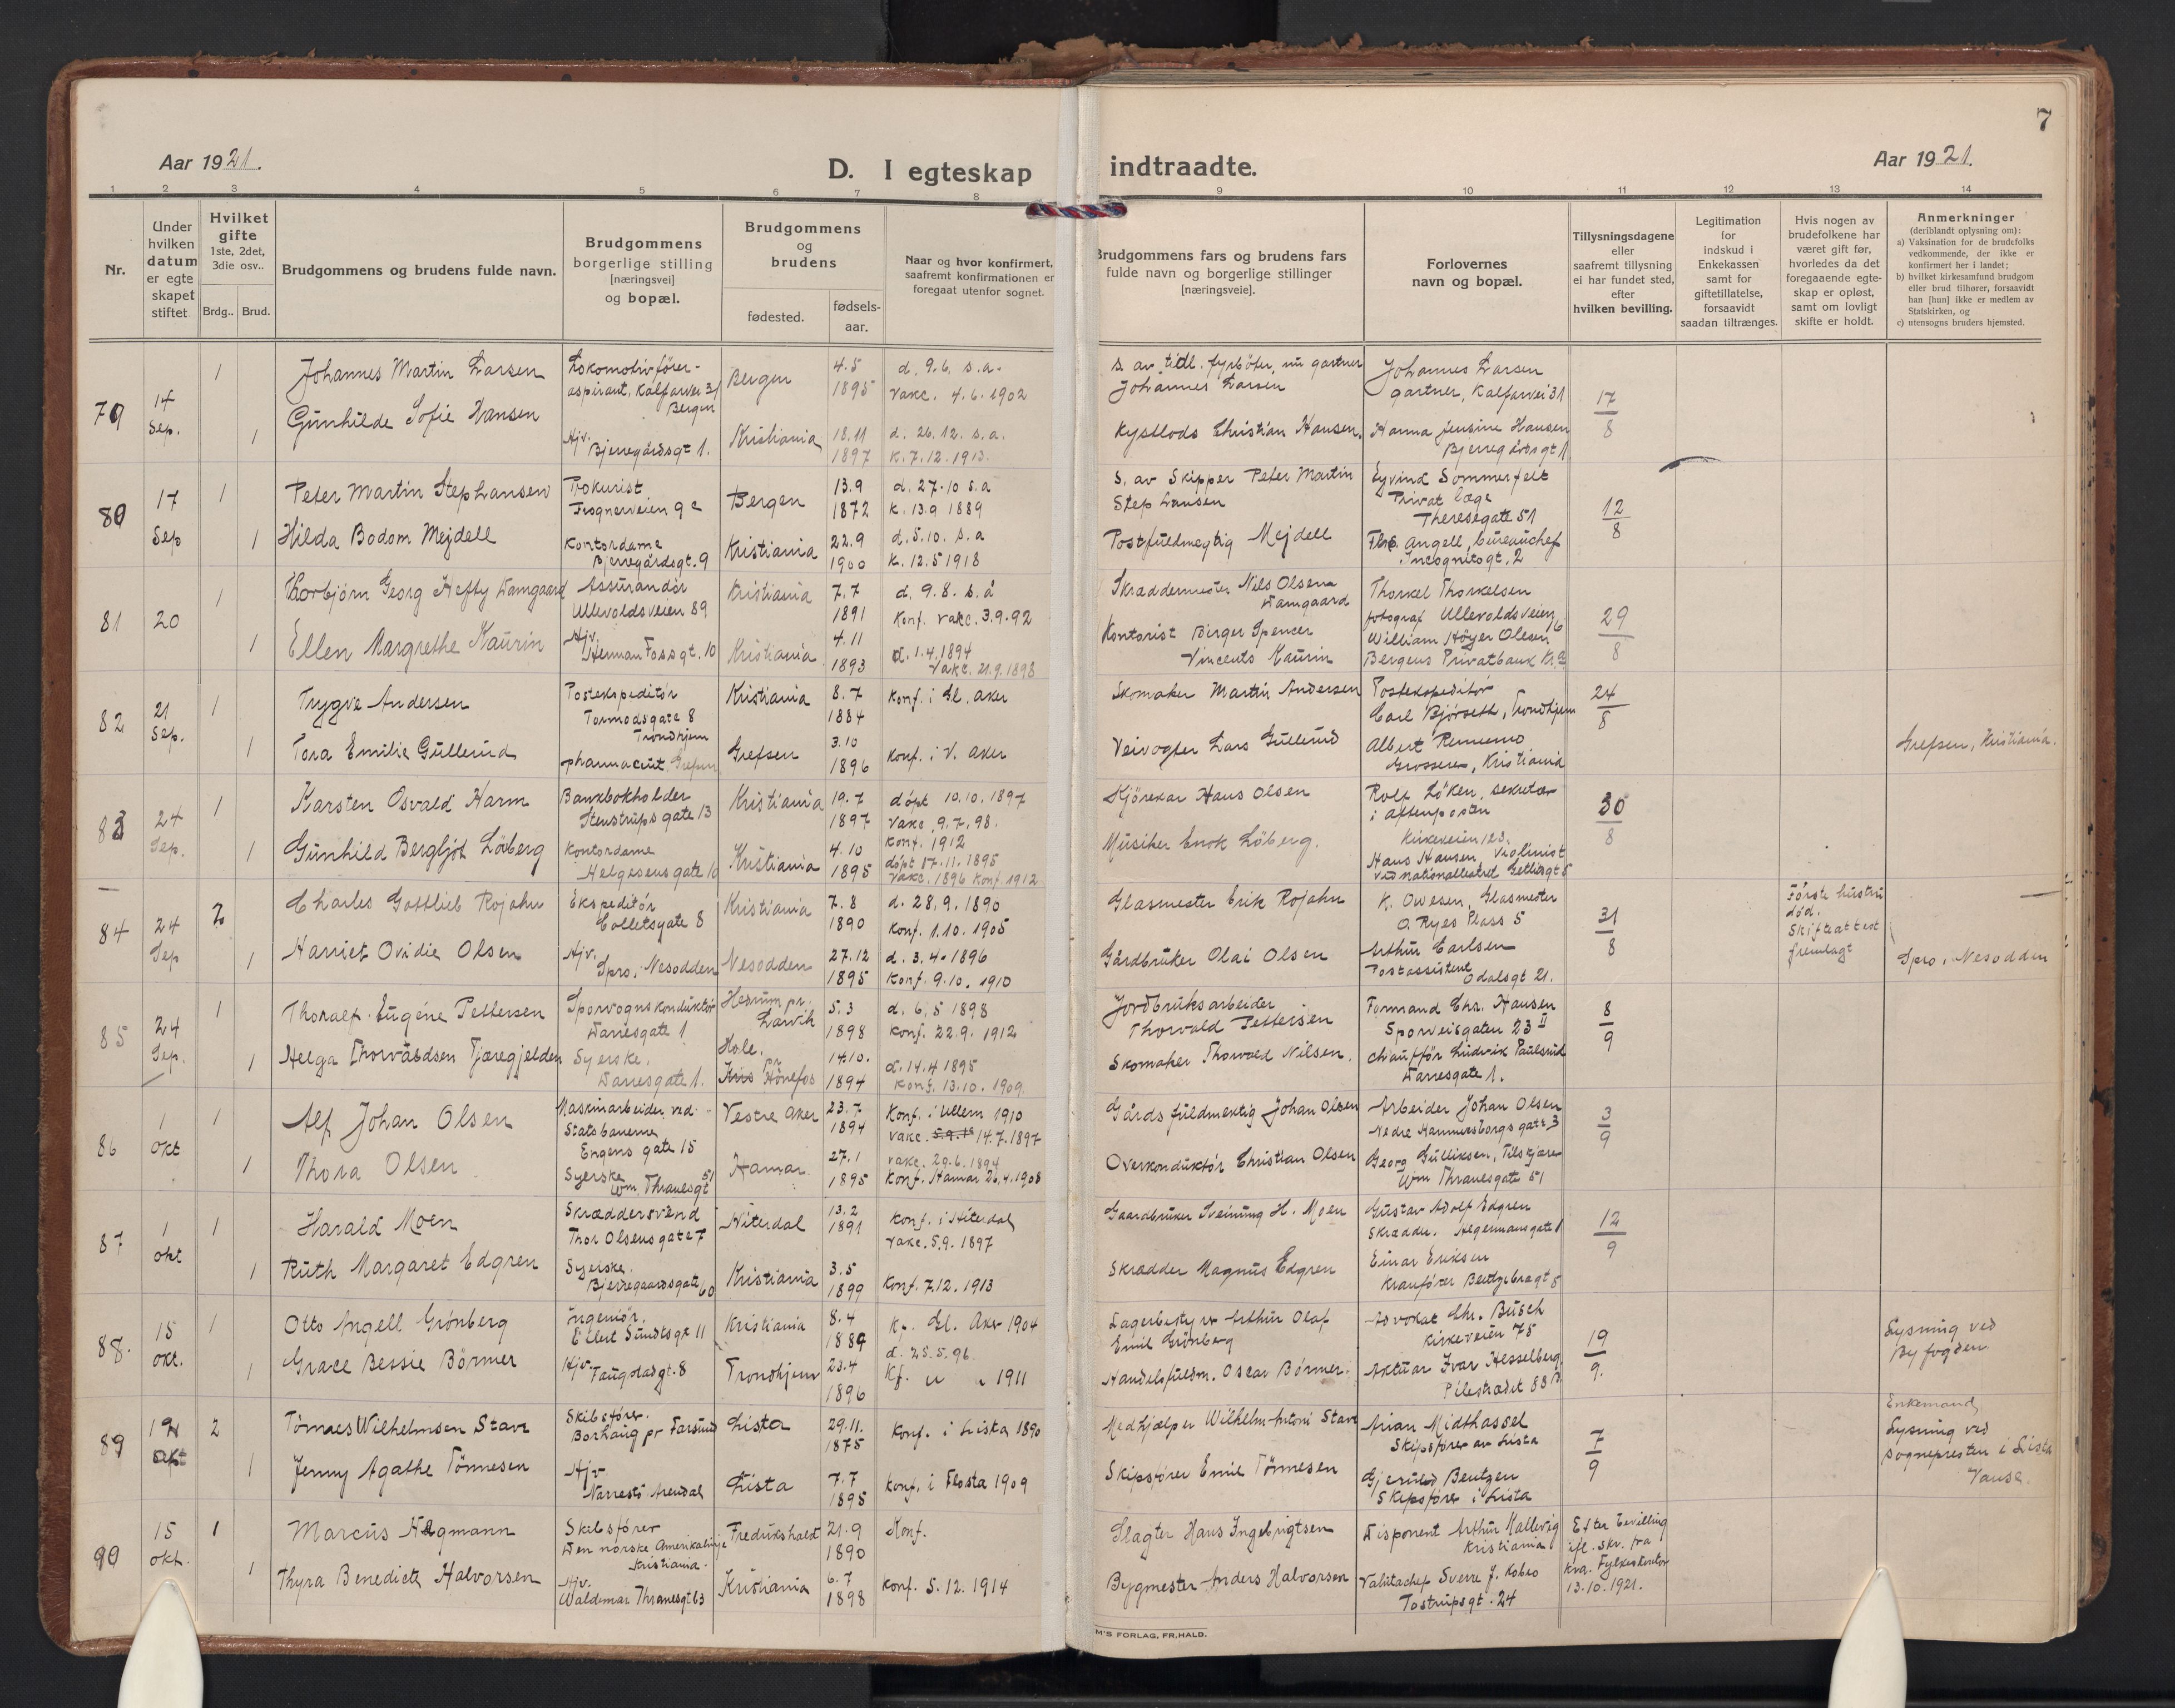 7
Aar 1921.
D. I egteskap indtraadte.
Aar 1921.
1 2 3 4 5 6 7 8 9 10 11 12 13 14
Nr.
Under hvilken datum er egteskapet stiftet.
Hvilket gifte 1ste, 2det, 3die osv..
Brdg.. Brud.
Brudgommens og brudens fulde navn.
Brudgommens borgerlige stilling [næringsvei] og bopæl.
Brudgommens og brudens
fødested.
fødsels-aar.
Naar og hvor konfirmert, saafremt konfirmationen er foregaat utenfor sognet.
Brudgommens fars og brudens fars fulde navn og borgerlige stillinger [næringsveie].
Forlovernes navn og bopæl.
Tillysningsdagene eller saafremt tillysning ei har fundet sted, efter hvilken bevilling.
Legitimation for indskud i Enkekassen samt for giftetillatelse, forsaavidt saadan tiltrænges.
Hvis nogen av brudefolkene har været gift før, hvorledes da det foregaaende egteskap er opløst, samt om lovligt skifte er holdt.
Anmerkninger (deriblandt oplysning om): a) Vaksination for de brudefolks vedkommende, der ikke er konfirmert her i landet; b) hvilket kirkesamfund brudgom eller brud tilhører, forsaavidt han [hun] ikke er medlem av Statskirken, og c) utensogns bruders hjemsted.
79 14 Sep. 1 Johannes Martin Larsen Lokomotivfører-aspirant, Kalfarvei 31 Bergen Bergen 4.5 1895 d. 9.6. s.a. Vakc. 4.6.1902 s. av tidl. fyrbøter, nu gartner Johannes Larsen Johannes Larsen gartner, Kalfarvei 31 17/8
1 Gunhilde Sofie Hansen Hjv. Bjerregårdsgt 1. Kristiania 18.11 1897 d. 26.12. s.a. K. 7.12.1913. Kystlods Christian Hansen. Hanna Jensine Hansen Bjerregårdsgt 1
80 17 Sep 1 Peter Martin Stephansen Prokurist Frognerveien 9c Bergen 13.9 1872 d. 27.10 s.a K. 13.9 1889 S. av Skipper Peter Martin Stephansen Eyvind Sommerfelt Privat læge Theresegate 51 12/8
1 Hilda Bodom Mejdell Kontordame Bjerregårdsgt. 9 Kristiania 22.9 1900 d. 5.10. s.a K. 12.5 1918 Postfuldmegtig Mejdell Angell, bureauchef Incognitogt. 2
81 20 1 Thorbjørn Georg Hefty Damgaard Assurandør Ullevoldsveien 89 Kristiania 7.7 1891 d. 9.8. s.å Konf. Vakc. 3.9.92 Skraddermester Nils Olsen Damgaard Thorkel Thorkelsen fotograf Ullevoldsveien 6 29/8
1 Ellen Margrethe Kaurin Hjv. Herman Fossgt. 10 Kristiania 4.11 1893 d. 1.4.1894 Vakc. 21.9.1898 Kontorist Birger Spencer Vincents Kaurin William Høyer Olsen Bergens Privatbank Kr.a
82 21 Sep. 1 Trygve Andersen Postekspeditør Tormodsgate 8 Trondhjem Kristiania 8.7 1884 Konf. i Gl. Aker Skomaker Martin Andersen Postekspeditør Carl Bjørseth, Trondhjem 24/8
1 Tora Emilie Gullerud pharmaceut, Grefsen Grefsen 3.10 1896 Konf. i V. Aker Veivogter Lars Gullerud Albert Grosserer, Kristiania Grefsen, Kristiania.
83 24 Sep. 1 Karsten Osvald Harm Bankbokholder Stenstrupsgate 13 Kristiania 19.7 1897 døpt 10.10.1897 Vakc. 9.7.98. Konf. 1912 Kjørekar Hans Olsen Rolf Løken, sekretær i Aftenposten Kirkeveien 123. 30/8
1 Gunhild Bergljot Løberg Kontordame Helgesensgate 10 Kristiania 4.10 1895 døpt 17.11.1895 Vakc. 1896 Konf. 1912 Musiker Enok Løberg. Hans Hansen, Violinist ved Nationalteatret
84 24 Sep 2 Charles Gottlieb Rojahn Ekspeditør Colletsgate 8 Kristiania 7.8 1890 d. 28.9.1890 Konf. 1.10.1905 Glasmester Erik Rojahn K. Owesen, Glasmester O. Ryes Plass 5 31/8 Første hustru død. Skifteattest fremlagt
1 Harriet Ovidie Olsen Hjv. Spro, Nesodden Nesodden 27.12 1895 d. 3.4.1896 Konf. 9.10.1910 Gårdbruker Olai Olsen Arthur Carlsen Postassistent Odalsgt 21. Spro, Nesodden
85 24 Sep. 1 Thoralf Eugéne Pettersen Sporvognskonduktør Darresgate 1 Hedrum pr. Larvik 5.3 1898 d. 6.5 1898 Konf. 22.9.1912 Jordbruksarbeider Thorvald Pettersen Formand Chr. Hansen Sporveisgaten 23 II 8/9
1 Helga Thorvaldsen Tjæregjelden Syerske. Darresgate 1. Hole. pr. Hønefos 14.10. 1894 d. 14.4 1895 Konf. 13.10.1909 Skomaker Thorvald Nilsen. Chauffør Ludvik Paulsrud Darresgate 1.
86 1 Okt 1 Alf Johan Olsen Maskinarbeider ved Statsbanerne Engens gate 15 Vestre Aker 23.7 1894 Konf. i Ullern 1910 Vakc. 14.7.1897 Gårdsfuldmektig Johan Olsen Arbeider Johan Olsen Nedre Hammersborgsgate 3 3/9
1 Thora Olsen Syerske Wm. Thranesgt 51 Hamar 27.1 1895 Vakc. 29.6.1894 Konf. Hamar 26.4.1908 Overkonduktør Christian Olsen Georg Gulliksen, Tilskjærer Wm Thranesgate 51
87 1 Okt 1 Harald Moen Skræddersvend Thor Olsens gate 7 Hiterdal 13.2 1891 Konf. i Hiterdal Vakc. 5.9.1897 Gaardbruker Sveinung H. Moen Gustav Adolf Edgren Skrædder. 12/9
1 Ruth Margaret Edgren Syerske. Bjerregaardsgate 60 Kristiania 3.5 1899 Konf. 7.12.1913 Skrædder Magnus Edgren Einar Eriksen Kranfører
88. 15 Okt. 1 Otto Angell Grønberg Ingeniør. Eilert Sundtsgt 11 Kristiania 8.4 1889 Kf. Gl. Aker 1904 Lagerbestyrer Arthur Olaf Emil Grønberg Advokat Chr. Busch Kirkeveien 75 19/9. Lysning ved Byfogden
1 Grace Bessie Børmer Hjv. Faugstadgt. 8 Trondhjem 23.4 1896 d. 25.5.96. Kf. " " 1911 Handelsfuldm. Oscar Børmer. Aktuar Ivar Hesselberg. Pilestrædet 88
89 Okt 2 Tønnes Wilhelmsen Stave Skibsfører. Borhaug pr Farsund Lista 29.11. 1875 Konf. i Lista 1890 Medhjælper Wilhelm Antoni Stave Arian Midthassel Skipsfører av Lista 7/9 Enkemand Lysning ved Sognepresten i Lista Vanse.
1 Jenny Agathe Tønnesen Hjv. Narrestø Arendal Lista 7.7 1895 Konf. i Flosta 1909 Skipsfører Emil Tønnesen Gjerulf Bentzen Skipsfører i Lista
90 15 Okt. 1 Marcus Hagmann Skibsfører Den norske Amerikalinje Kristiania. Fredrikshald 21.9 1890 Konf. Slagter Hans Ingebrigtsen Disponent Arthur Kallevig Kristiania Efter bevilling ifl. skr. fra Kra. Fylkeskontor 13.10.1921.
1 Thyra Benedicte Halvorsen Hjv. Waldemar Thranesgt 63 Kristiania 6.7 1898 Konf. 5.12.1914 Bygmester Anders Halvorsen Valutachef Sverre J. Tostrupsgt. 24
M'S FORLAG, FR,HALD.